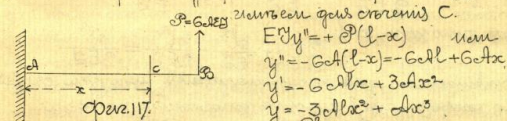 имѣем для сѣченія С.
P=6AEJ
EJy''=+P(l-x) или
y''=-6A(l-x)=-6Al+6Ax
y'=-6Alx+3Ax²
y=-3Alx²+Ax³
A
C
B
x
Фиг.117.